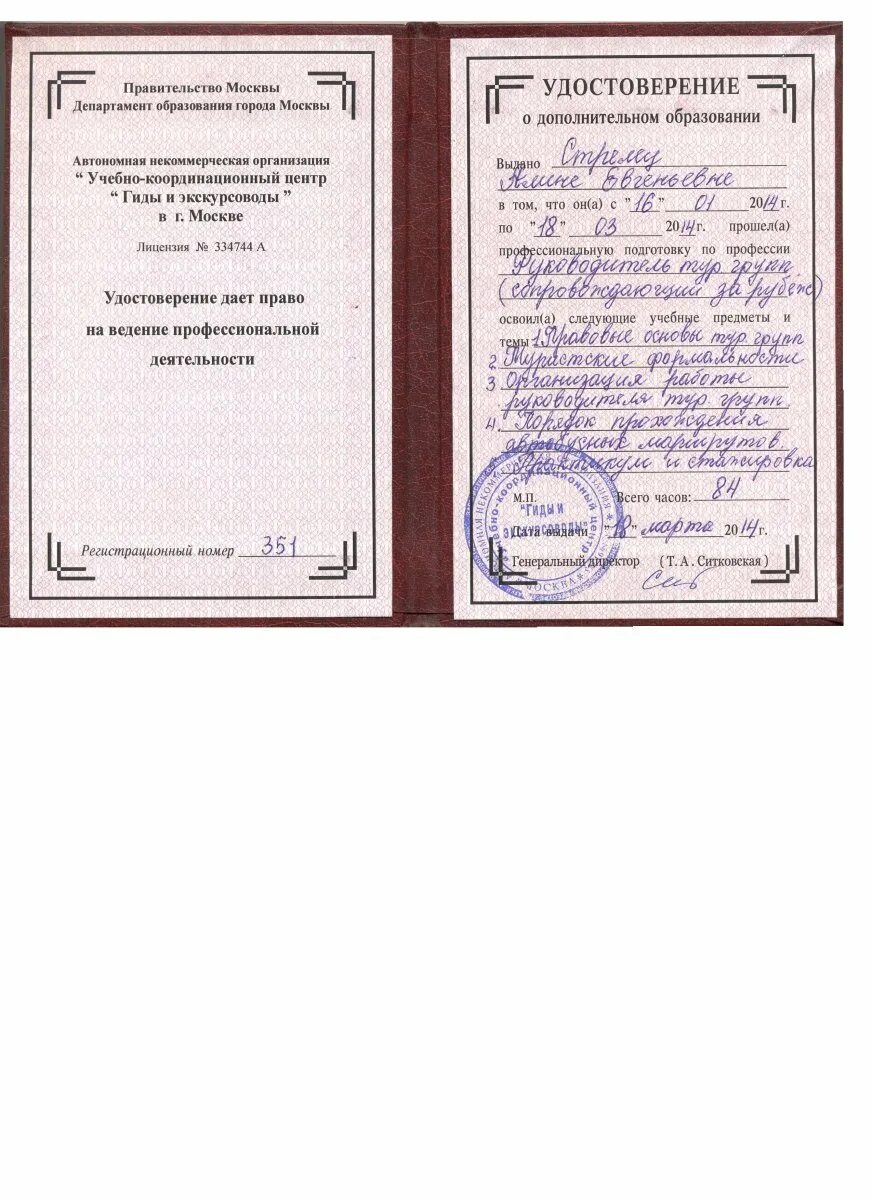 Правительство Москвы
Департамент образования города Москвы
Автономная некоммерческая организация
“ Учебно-координационный центр
“ Гиды и экскурсоводы ”
в г. Москве
Лицензия № 334744 А
Удостоверение дает право
на ведение профессиональной
деятельности
Регистрационный номер 351
УДОСТОВЕРЕНИЕ
о дополнительном образовании
Выдано Стрелец
Алине Евгеньевне
в том, что он(а) с "16" 01 2014г.
по "18" 03 2014г. прошел(а)
профессиональную подготовку по профессии
Руководитель тур групп
(сопровождающий за рубеж)
освоил(а) следующие учебные предметы и
темы 1. Правовые основы тур. групп
2. Туристские формальности
3. Организация работы
руководителя тур. групп.
4. Порядок прохождения
автобусных маршрутов.
Практикум и стажировка
М.П. Всего часов: 84
Дата выдачи "18" марта 2014г.
Генеральный директор (Т.А. Ситковская)
Учебно-координационный центр
"ГИДЫ И
ЭКСКУРСОВОДЫ"
МОСКВА